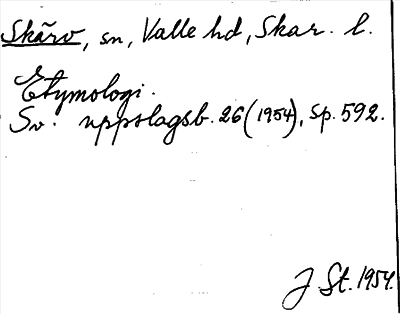 Skärv, sn, Valle hd, Skar. l.
Etymologi.
Sv. uppslagsb. 26 (1954), sp. 592.
J St. 1954.